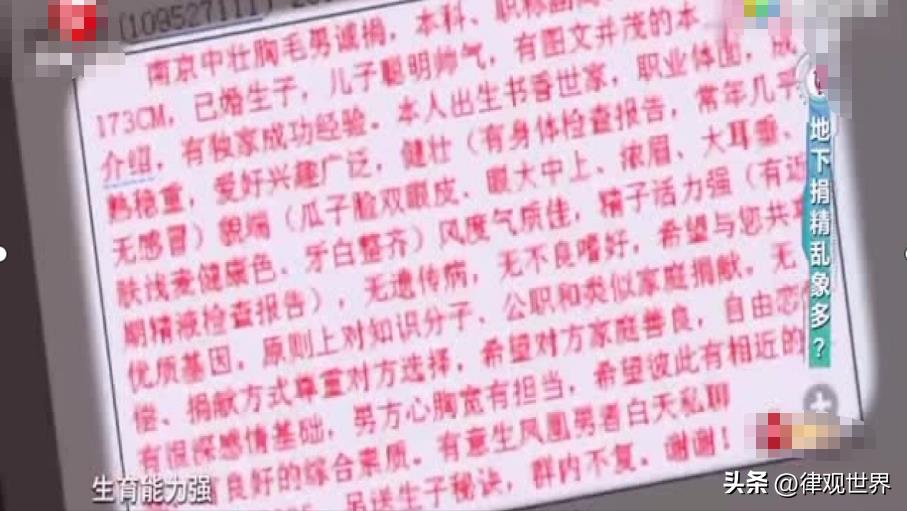 (109527111) 20
南京中壮胸毛男诚捐，本科、职称副高
173CM，已婚生子，儿子聪明帅气，有图文并茂的本
介绍，有独家成功经验。本人出生书香世家，职业体面，成
熟稳重，爱好兴趣广泛，健壮（有身体检查报告，常年几乎
无感冒）貌端（瓜子脸双眼皮、眼大中上、浓眉、大耳垂、
肤浅麦健康色、牙白整齐）风度气质佳，精子活力强（有近
期精液检查报告），无遗传病，无不良嗜好，希望与您共享
优质基因，原则上对知识分子、公职和类似家庭捐献。无
偿、捐献方式尊重对方选择，希望对方家庭善良，自由恋
有很深感情基础，男方心胸宽有担当，希望彼此有相近的
良好的综合素质。有意生凤凰男者白天私聊
另送生子秘诀，群内不复。谢谢！
地下捐精乱象多？
生育能力强
头条 @律观世界